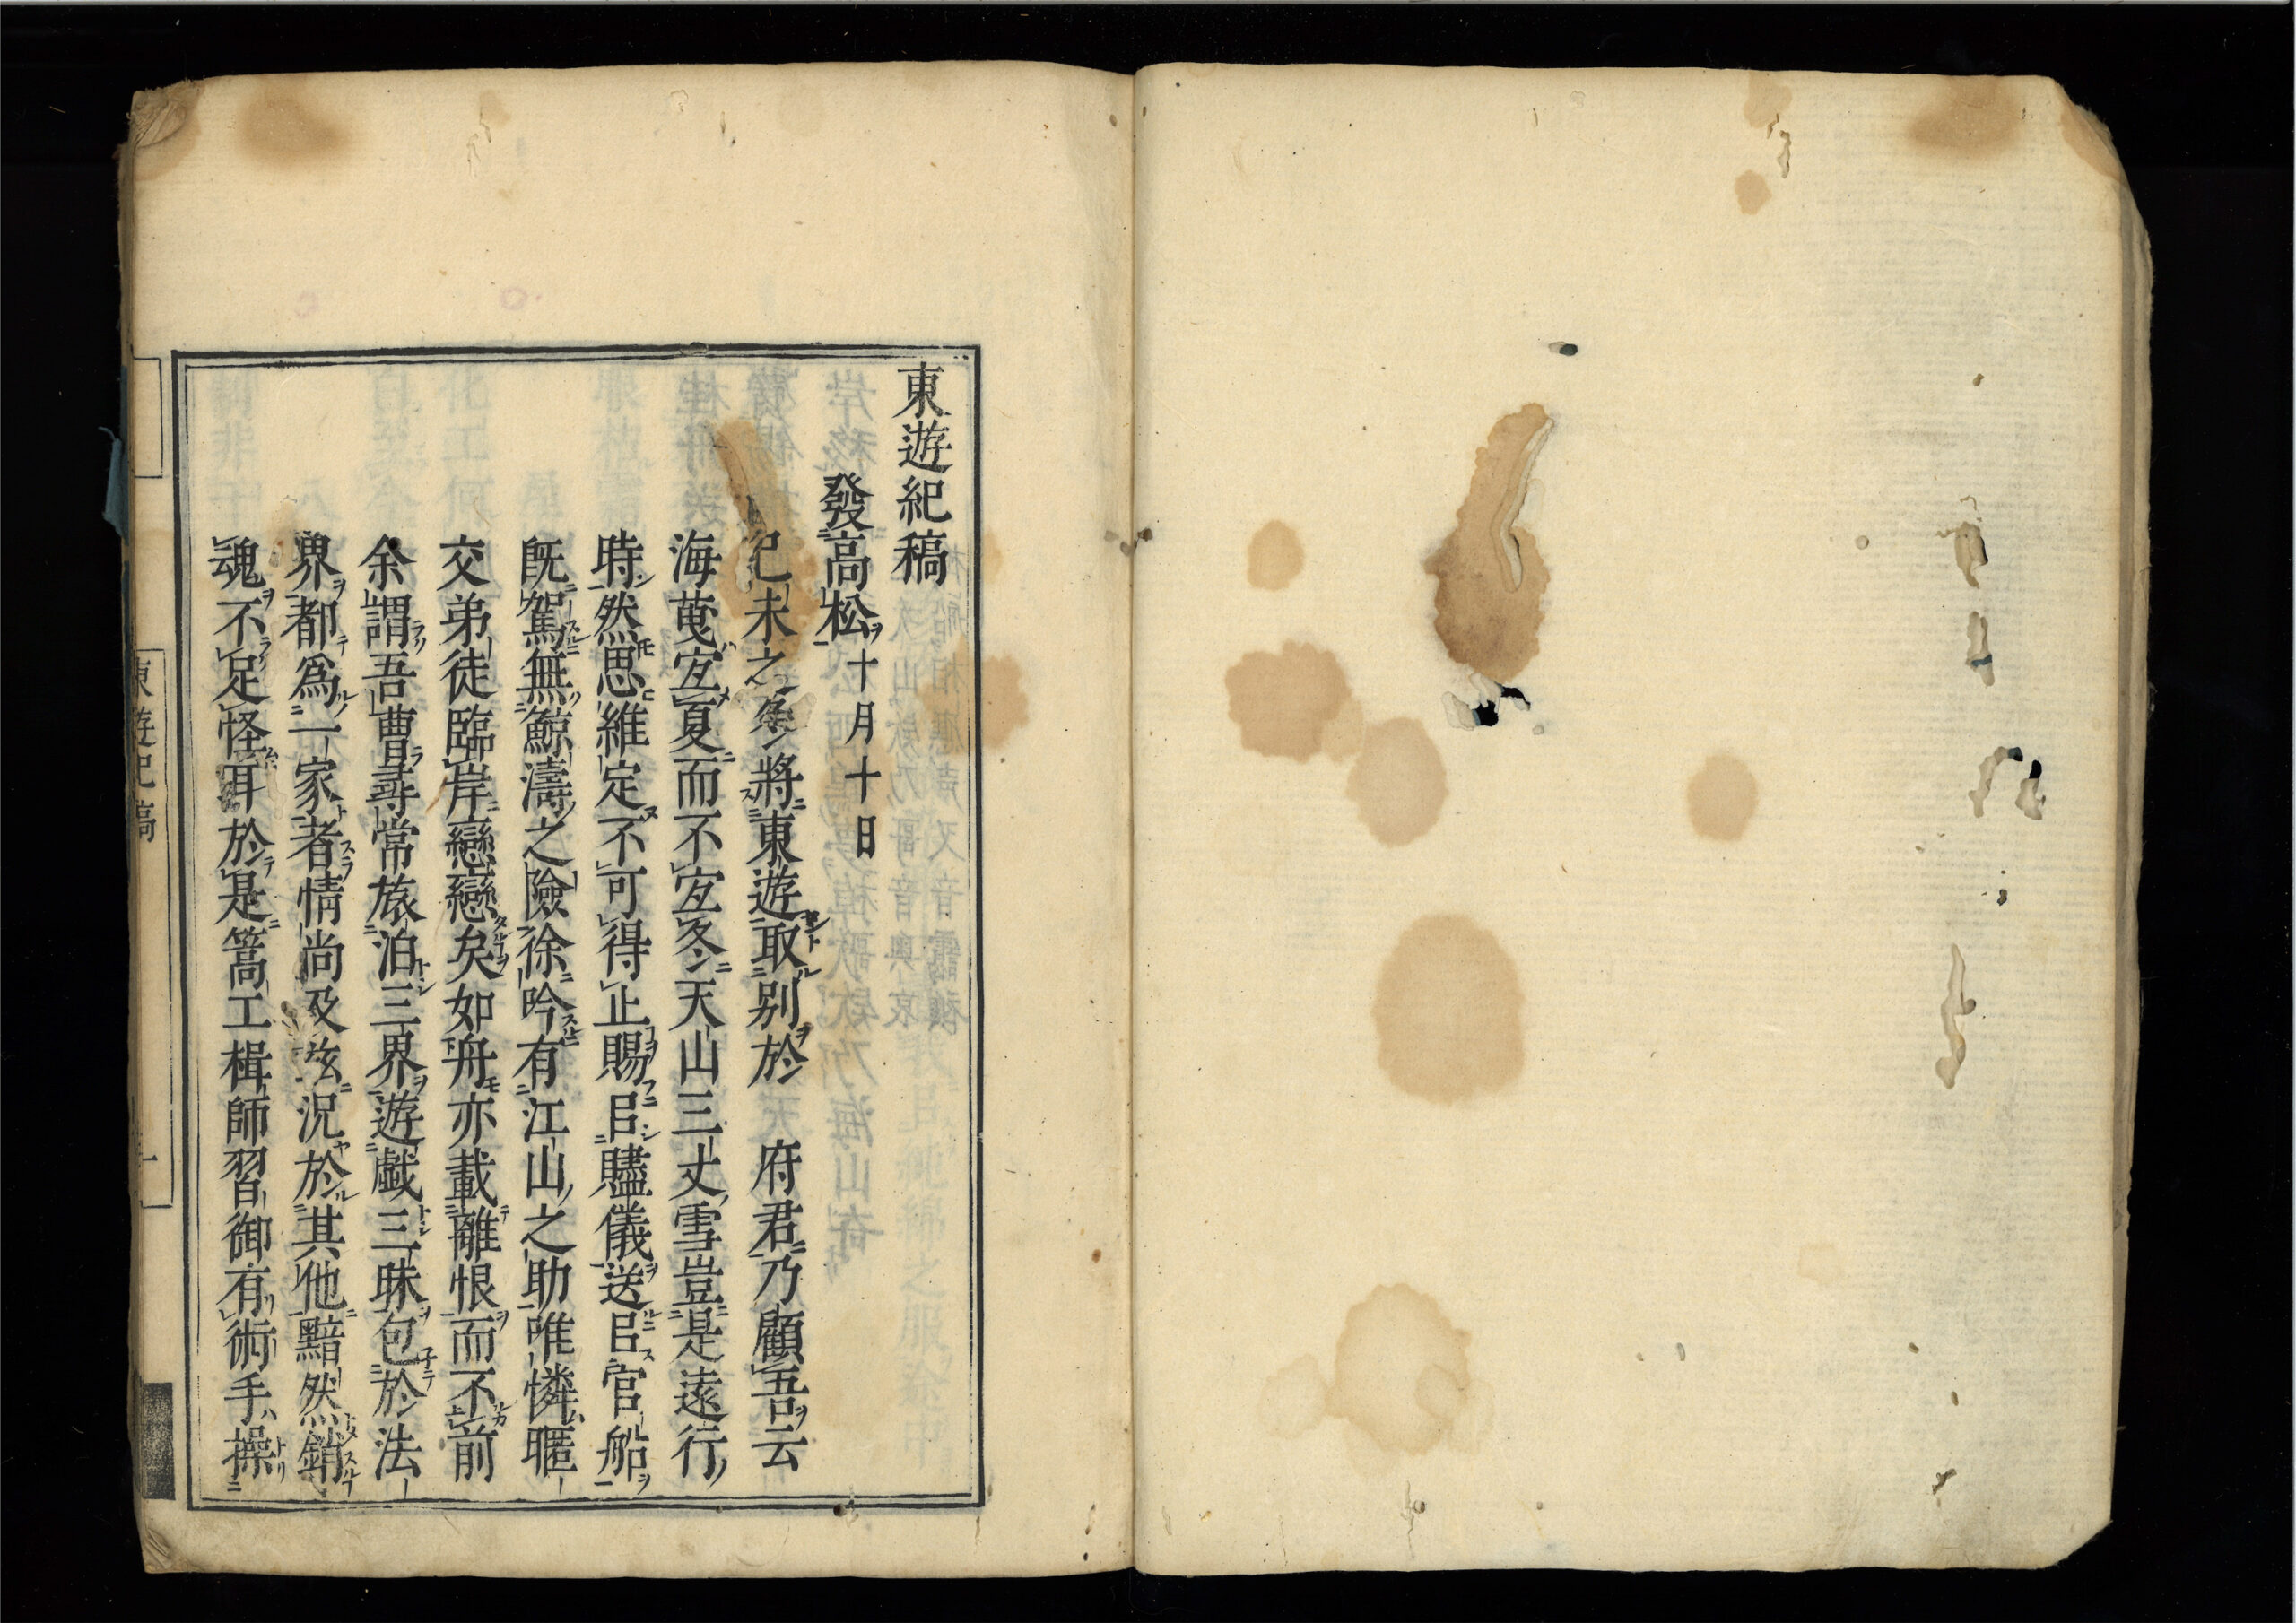 東遊紀稿
發高松十月十日
己未之冬將東遊取別於　府君乃顧吾云
海莄宐夏而不宐冬天山三丈雪豈是遠行
時然思維定不可得止賜㠯贐儀送㠯官船
既駕無鯨濤之險徐吟有江山之助唯憐暱
交弟徒臨岸戀戀矣如舟亦載離恨而不前
余謂吾曹尋常旅泊三界遊戲三昧包於法
界都為一家者情尚及玆況於其他黯然銷
魂不足怪耳於是篙工楫師習御有術手操
東遊紀稿
一